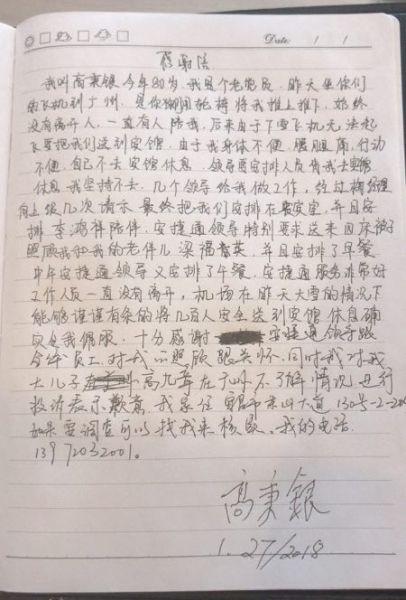 Date: / /
感谢信
我叫高秉银今年80岁，我是个老党员，昨天坐你们
的飞机到广州，是你们用轮椅将我推上推下，始终
没有离开人，一直有人陪我，后来由于下雪飞机无法起
飞要把我们送到宾馆，由于我身体不便，腰腿痛，行动
不便，自己不去宾馆休息，领导要安排人员背我去宾馆
休息我坚持不去，几个领导给我做工作，经过
向上级几次请示最终把我们安排在 室，并且安
排李鸿祥陪伴，安捷通领导特别要求送来因床被子
照顾我和我的老伴儿梁福英，并且安排了早餐
中午安捷通领导又安排了午餐，安捷通服务非常好
工作人员一直没有离开，机场在昨天大雪的情况下
能够谨谨有条的将几百人安全送到宾馆休息确
实是我佩服，十分感谢安捷通领导跟
全体员工，对我的照顾跟关怀，同时我对我
大儿子 高 在广州不了解情况进行
投诉表示歉意，我家住宜昌市 山大道130号-2-
如果要调查可以找我来核实，我的电话
13972032001。
高秉银
1.27/2018